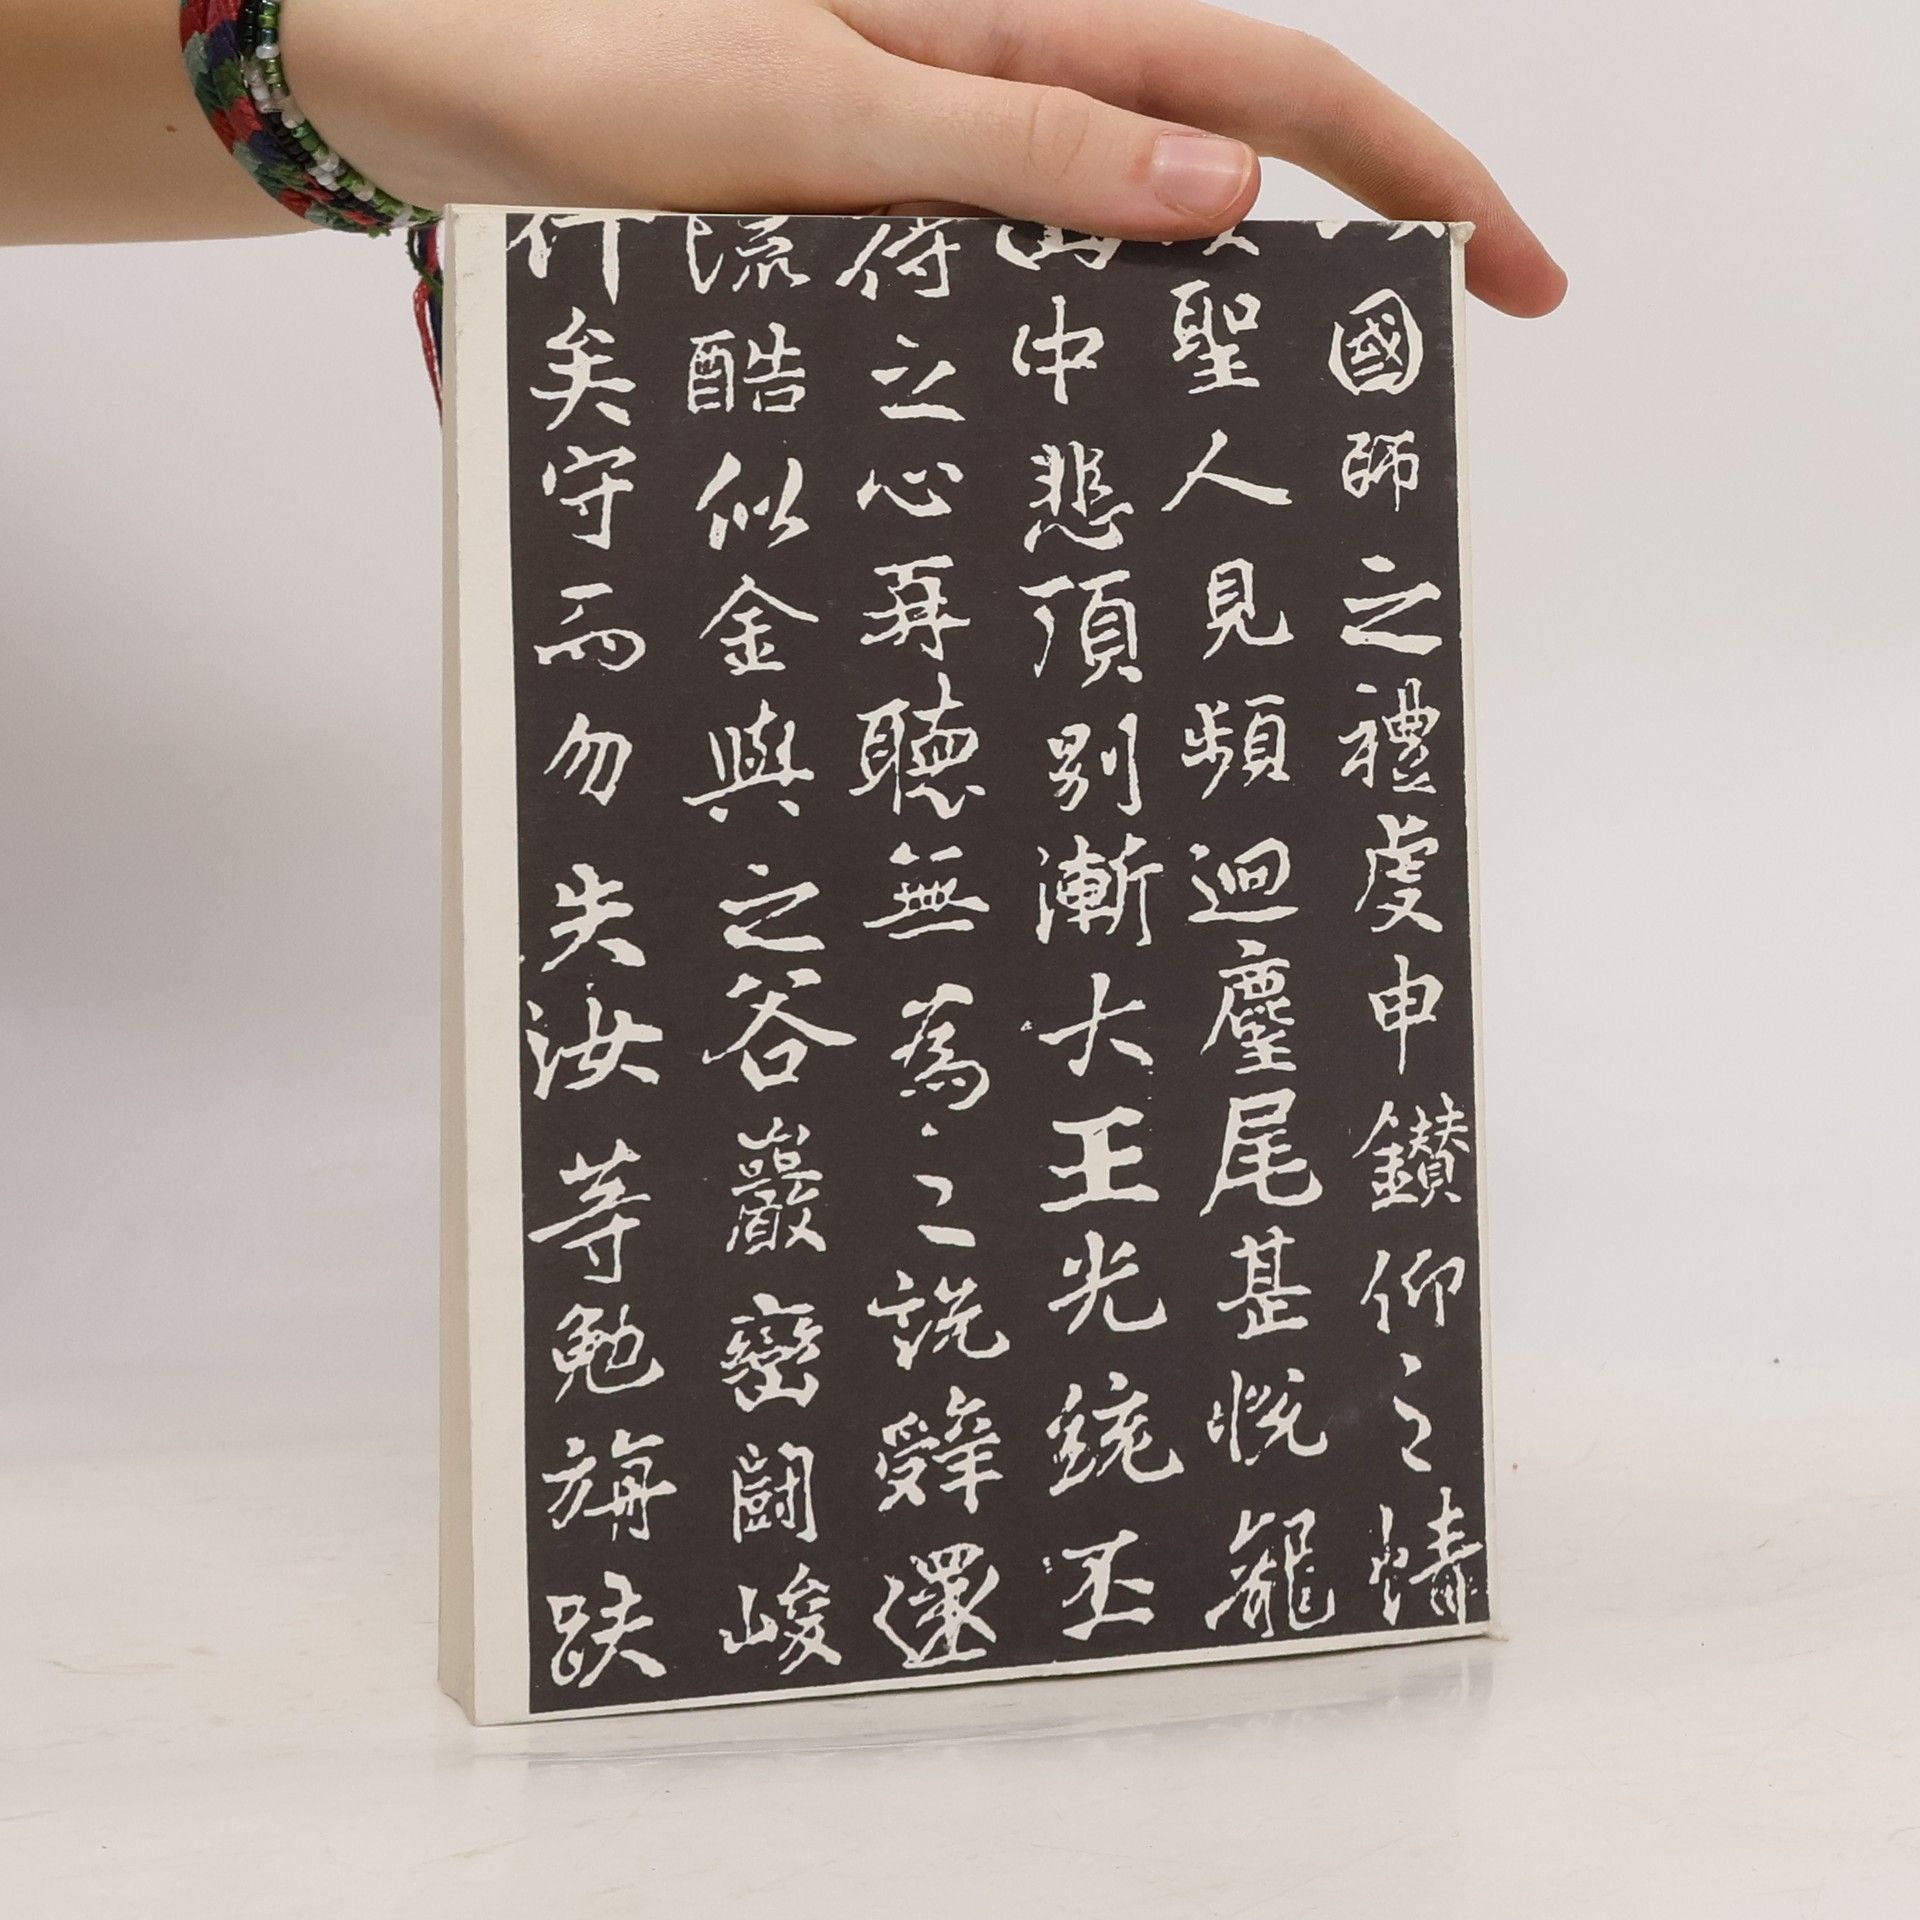 國師之禮虔申鑚仰之情
聖人見頻迴麈尾甚悅龍
中悲頂別漸大王光統丕
待之心再聽無為之說辤還
流酷似金與之谷巖巒鬪峻
行矣守而勿失汝等勉旃趺